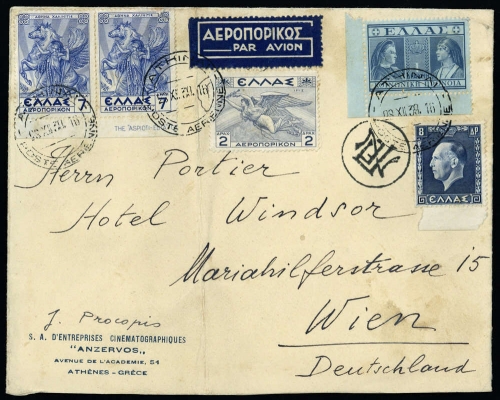 ΑΕΡΟΠΟΡΙΚΩΣ
PAR AVION
ΕΛΛΑΣ
7
ΑΕΡΟΠΟΡΙΚΟΝ
ΕΛΛΑΣ
7
ΑΕΡΟΠΟΡΙΚΟΝ
ΕΛΛΑΣ
2
2
ΑΕΡΟΠΟΡΙΚΟΝ
ΕΛΛΑΣ
8 ΔΡ
ΕΛΛΑΣ
POSTE AERIENNE
Herrn Portier
Hotel Windsor
Mariahilferstrasse 15
Wien
Deutschland
J. Procopis
S. A. D'ENTREPRISES CINÉMATOGRAPHIQUES
"ANZERVOS"
AVENUE DE L'ACADEMIE, 54
ATHÈNES - GRÈCE